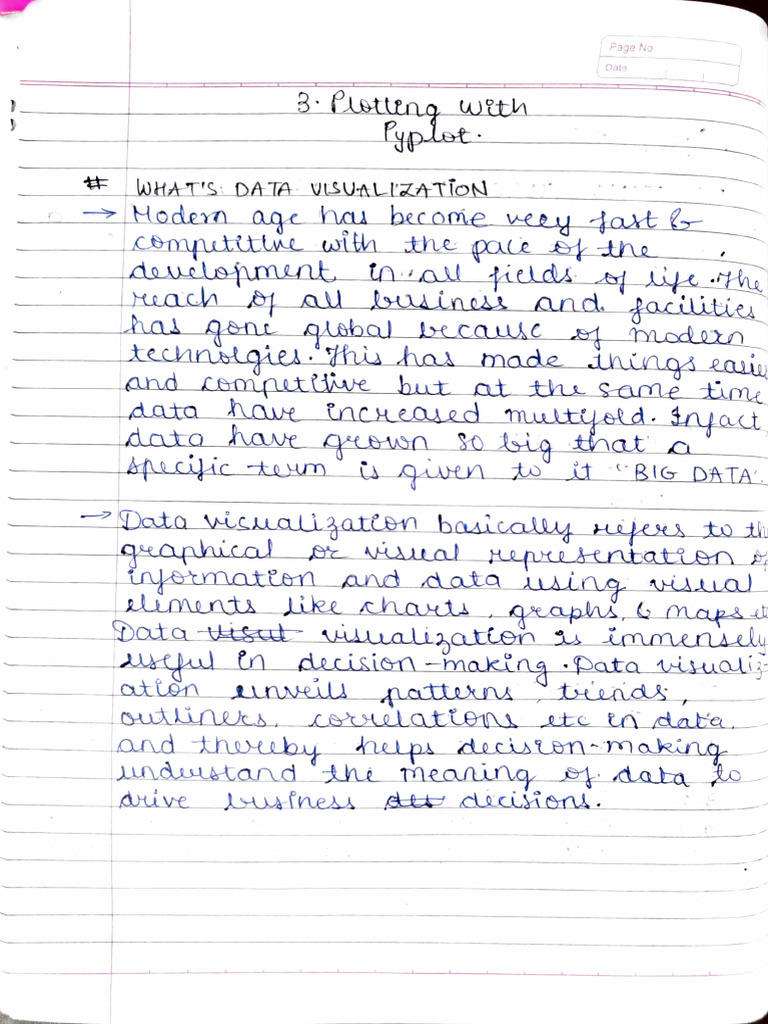 Page No
Date
3. Plotting with
Pyplot.
# WHAT'S DATA VISUALIZATION
→ Modern age has become very fast &
competitive with the pace of the
development in all fields of life. The
reach of all business and facilities
has gone global because of modern
technolgies. This has made things easier
and competitive but at the same time
data have increased multifold. Infact,
data have grown so big that a
specific term is given to it "BIG DATA".
→ Data visualization basically refers to th
graphical or visual representation of
information and data using visual
elements like charts, graphs, & maps et
Data visual visualization is immensely
useful in decision-making. Data visualiz-
ation unveils patterns, trends,
outliners, correlations etc in data,
and thereby helps decision-making
understand the meaning of data to
drive business decisions.